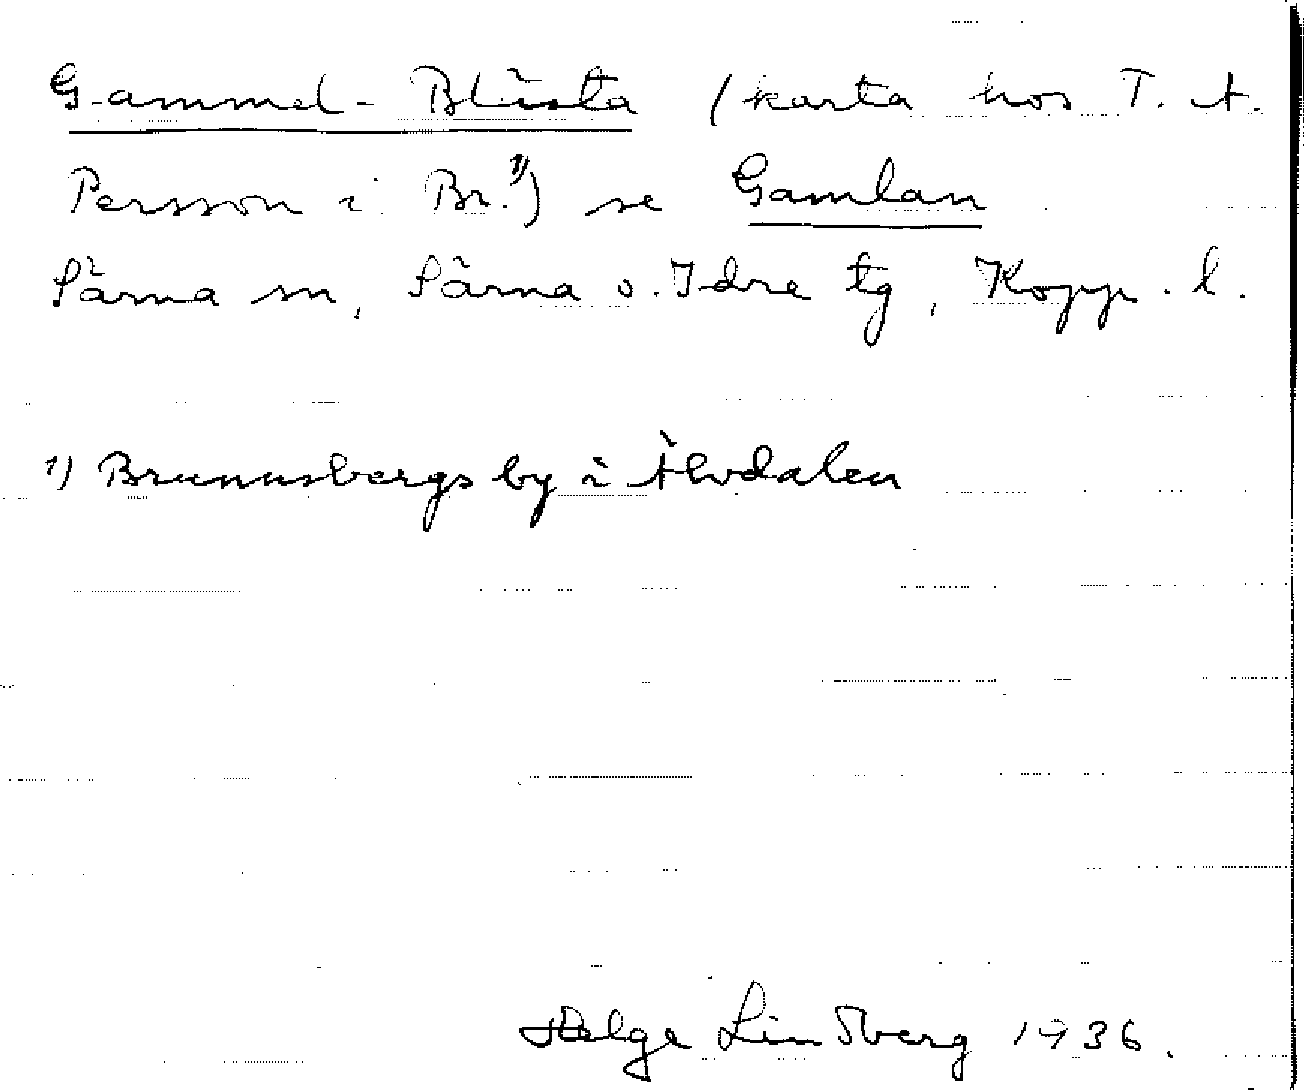 Gammel-Blästa (karta hos T. A.
Persson i Br.¹⁾) se Gamlan
Särna sn, Särna o. Idre tg, Kopp. l.
1) Brunnsbergs by i Älvdalen
Helge Lindberg 1936.